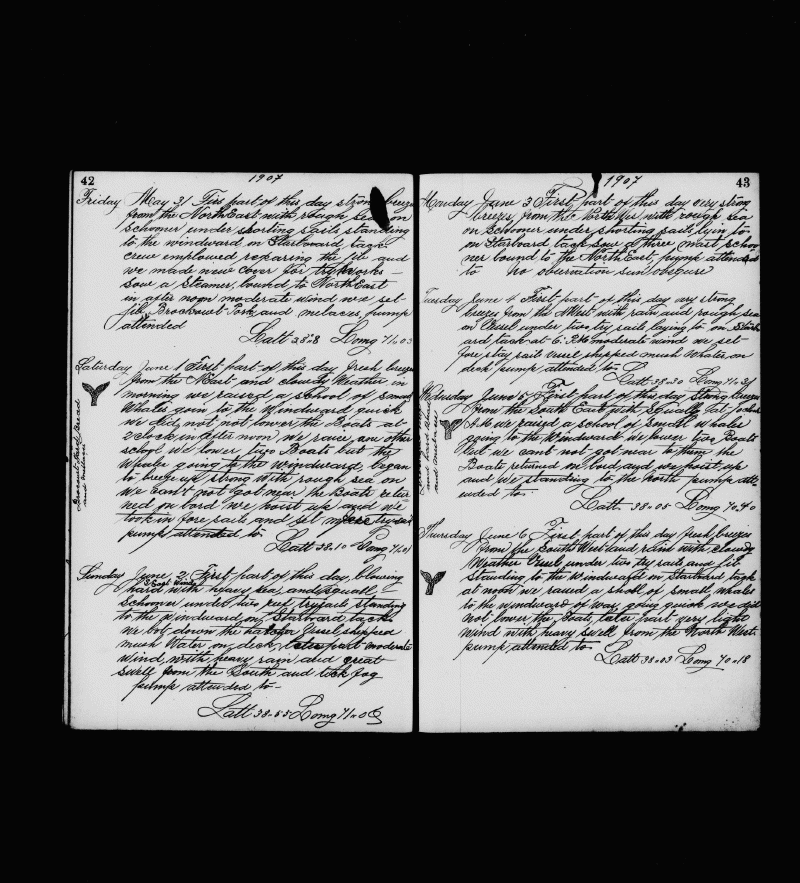 42
1907
Friday May 31 Firs part of this day strong breeze
from the NorthEast with rough sea on
Schooner under shorting sails standing
to the windward on Starboard tags
crew employed reparing the jib and
we made new Cover for tryworks
Saw a Steamer, bound to NorthEast
in after noon moderate wind we set
jib, Pork and melaces, pump
attended
Latt 38-28 Long 71-03
Saturday June 1 First part of this day fresh breeze
from the East and cloudy Weather in
morning we raised a School of small
Whales goin to the Windward quick
we did not not lower the Boats at
2 clock in after noon we raice an other
school we lower two Boats but the
Whales going to the windward, began
to breeze up strong with rough sea on
we can't not got near the Boats retur
ned on bord we hoist up and we
took in fore sails and set
pump attended to.
Latt 38-10 Long 71-01
bread
and melaces
Sunday June 2 First part of this day, blowing
S East Winds
hard with heavy sea, and squall
Schooner under two reef trysails standing
to the windward on Starboard tack
we bot down the Vessel shipped
much Water on deck, later part moderate
Wind, with heavy rain and great
swell from the South and tick fog
pump attended to-
Latt 38-55 Long 71-06
1907
43
Monday June 3 First part of this day very strong
breezes, from the North with rough sea
on Schooner under shorting sail lying to
on Starboard tack saw a three mast schoo
ner bound to the NorthEast, pump attended
to no observation sun obsguse
Tuesday June 4 First part of this day very strong
breezes from the West with rain and rough sea
on Vesel under two try sails laying to on Starbo
ard tack at 6. P.M. moderate wind we set
fore stay sail Vessel shipped much Water on
deck pump attended to-
Latt 38-30 Long 71-31
Wedusday June 5 First part of this day Strong breezes
from the South East with Squally at
A.M. we raised a school of Small whales
going to the Windward we lower two Boats
but we cant not got near to them the
Boats returned on bord and we hoist up
and we standing to the North pump att
ended to.
Latt. 38-05 Long 70-40
and hard bread
and melaces
Thursday June 6 First part of this day fresh breezes
from the South West and rain with cloudy
Weather Vesel under two try sails and jib
Standing to the Windward on Starboard tack
at noon we raised a sholl of small whales
to the windward of way going quick we did
not lower the Boats, later part very light
wind with heavy swell from the North West.
pump attented to
Latt 38-03 Long 70-18